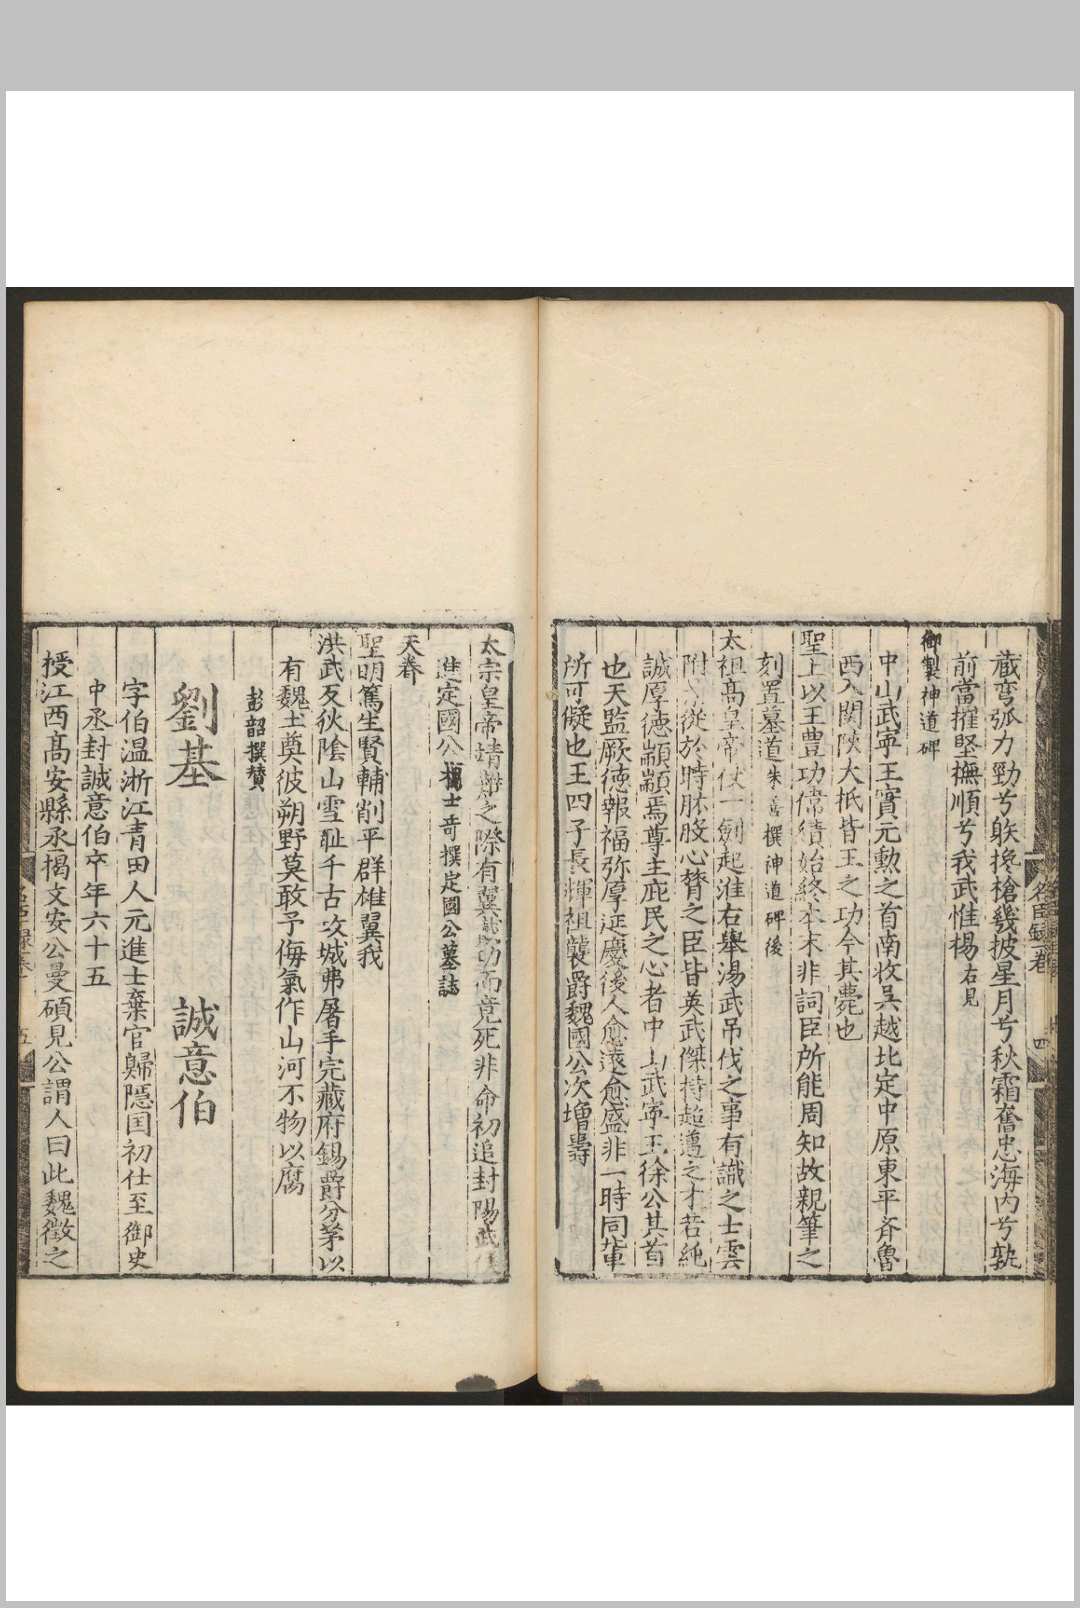 蔵弯弧力勁兮躾攙槍幾披星月兮秋霜奮忠海内兮孰
前當摧堅撫順兮我武惟楊右見
御製神道碑
中山武寧王實元勲之首南收吳越北定中原東平斉魯
西入関陝大抵皆王之功今其薨也
聖上以王豊功偉績始終本末非詞臣所能周知故親筆之
刻置墓道朱善撰神道碑後
太祖髙皇帝仗一劍起淮右舉湯武吊伐之事有識之士雲
附 從於時股肱心膂之臣皆英武傑特超邁之才若純
誠厚德顓顓焉尊主庇民之心者中山武寧王徐公其首
也天監厥徳報福弥厚延慶後人愈遠愈盛非一時同軰
所可儗也王四子長輝祖襲爵魏國公次增壽
太宗皇帝靖難之際有翼戴功而竟死非命初追封陽武侯
進定國公楊士竒撰定國公墓誌
天眷
聖明篤生賢輔削平群雄翼我
洪武反狄陰山雪耻千古攻城弗屠手完藏府錫爵分茅以
有魏土奠彼朔野莫敢予侮氣作山河不物以腐
彭韶撰賛
劉基 誠意伯
字伯温浙江青田人元進士棄官歸隱囯初仕至御史
中丞封誠意伯卒年六十五
授江西髙安縣丞揭文安公曼碩見公謂人曰此魏徵之
名臣録一卷 四
五